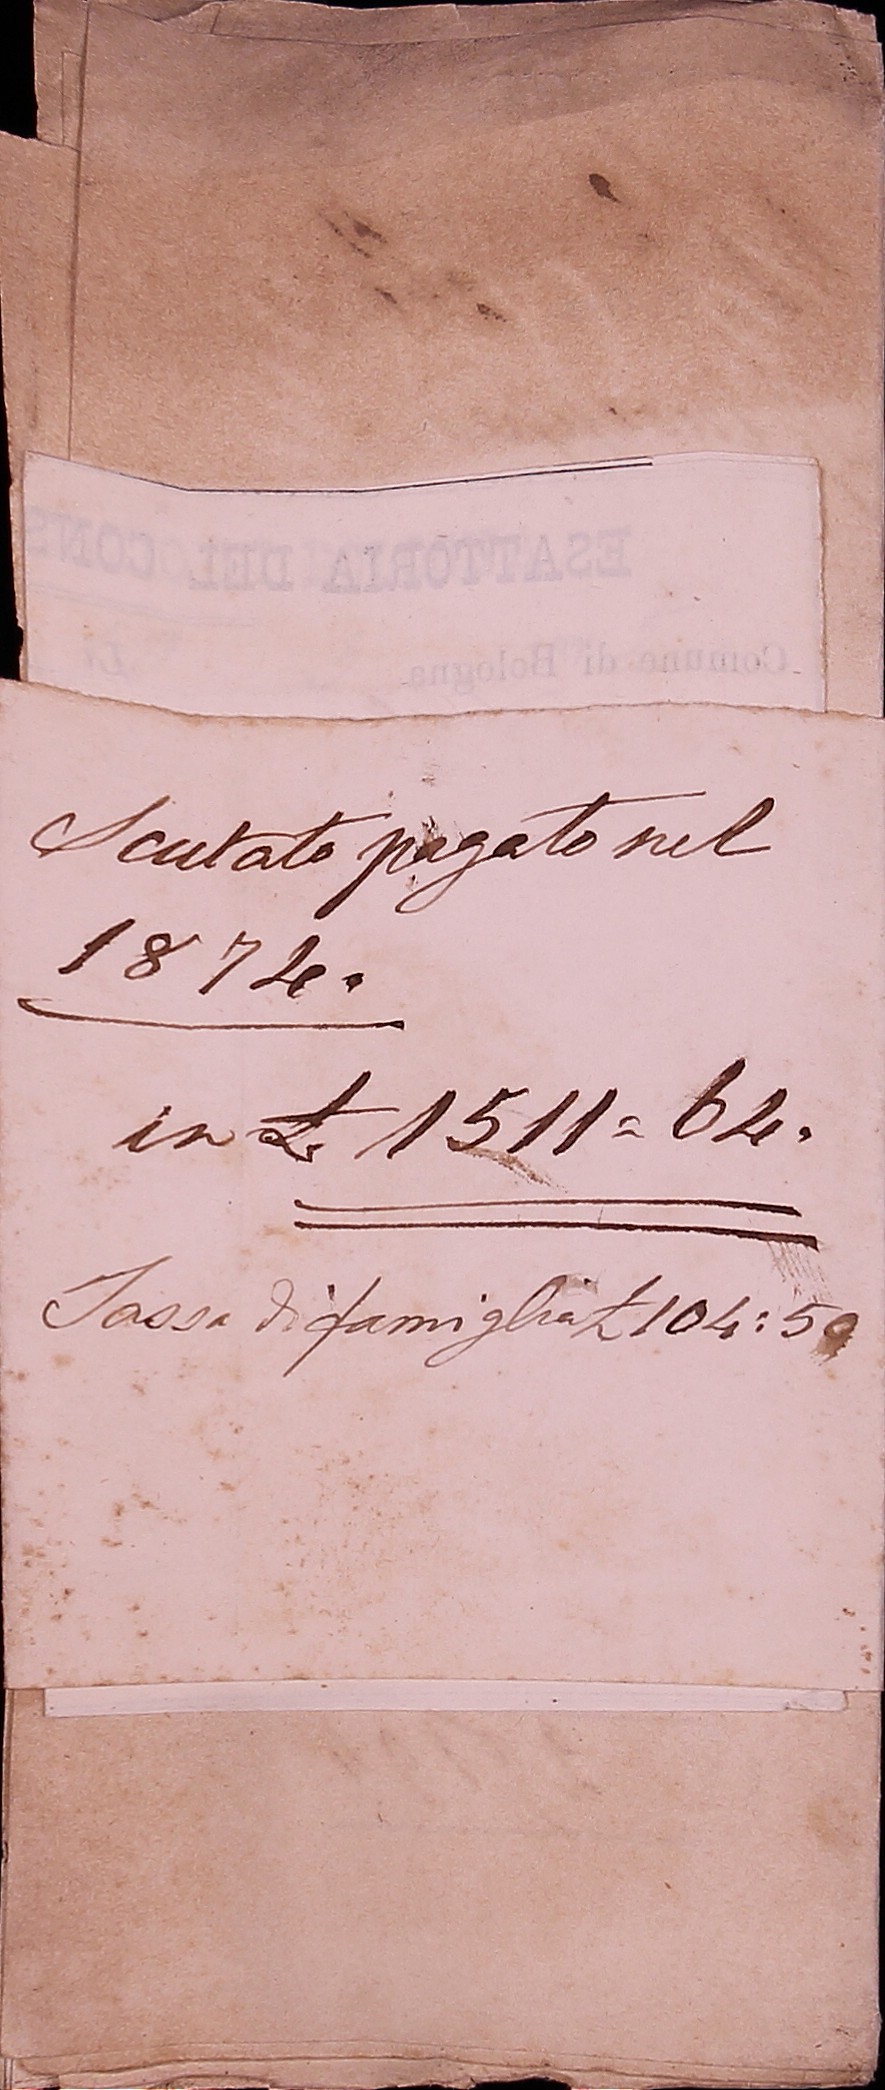 ESATTORIA DEL CONS
Comune di Bologna Li
Scutato pagato nel
1874.
in £ 1511 = 64.
Tassa di famiglia £ 104:50